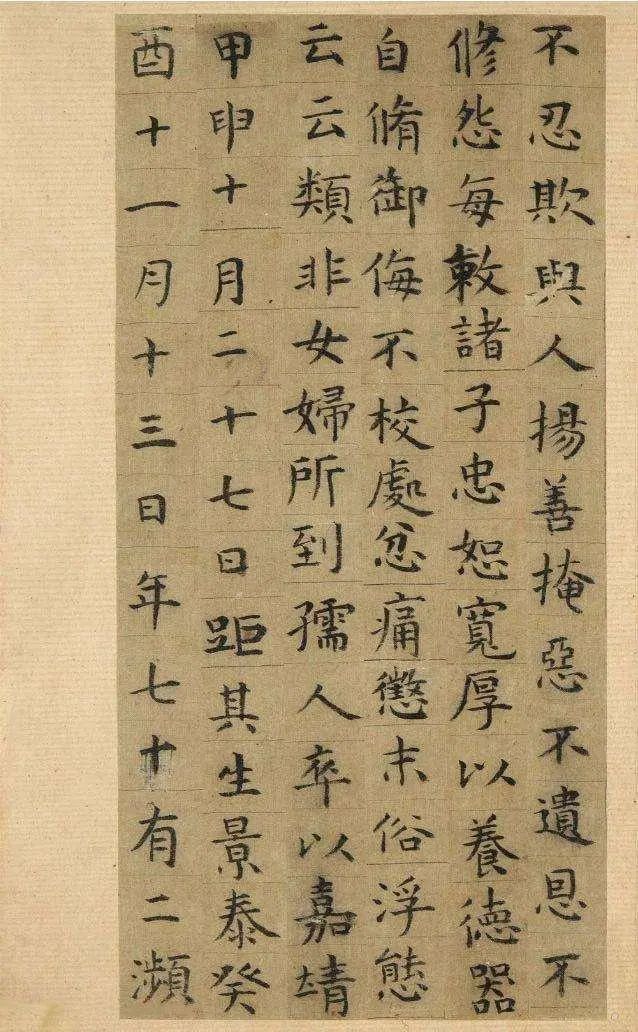 不忍欺與人揚善掩惡不遺恩不
修怨每敕諸子忠恕寬厚以養德器
自脩御侮不校處忿痛懲末俗浮態
云云類非女婦所到孺人卒以嘉靖
甲申十月二十七日距其生景泰癸
酉十一月十三日年七十有二瀕